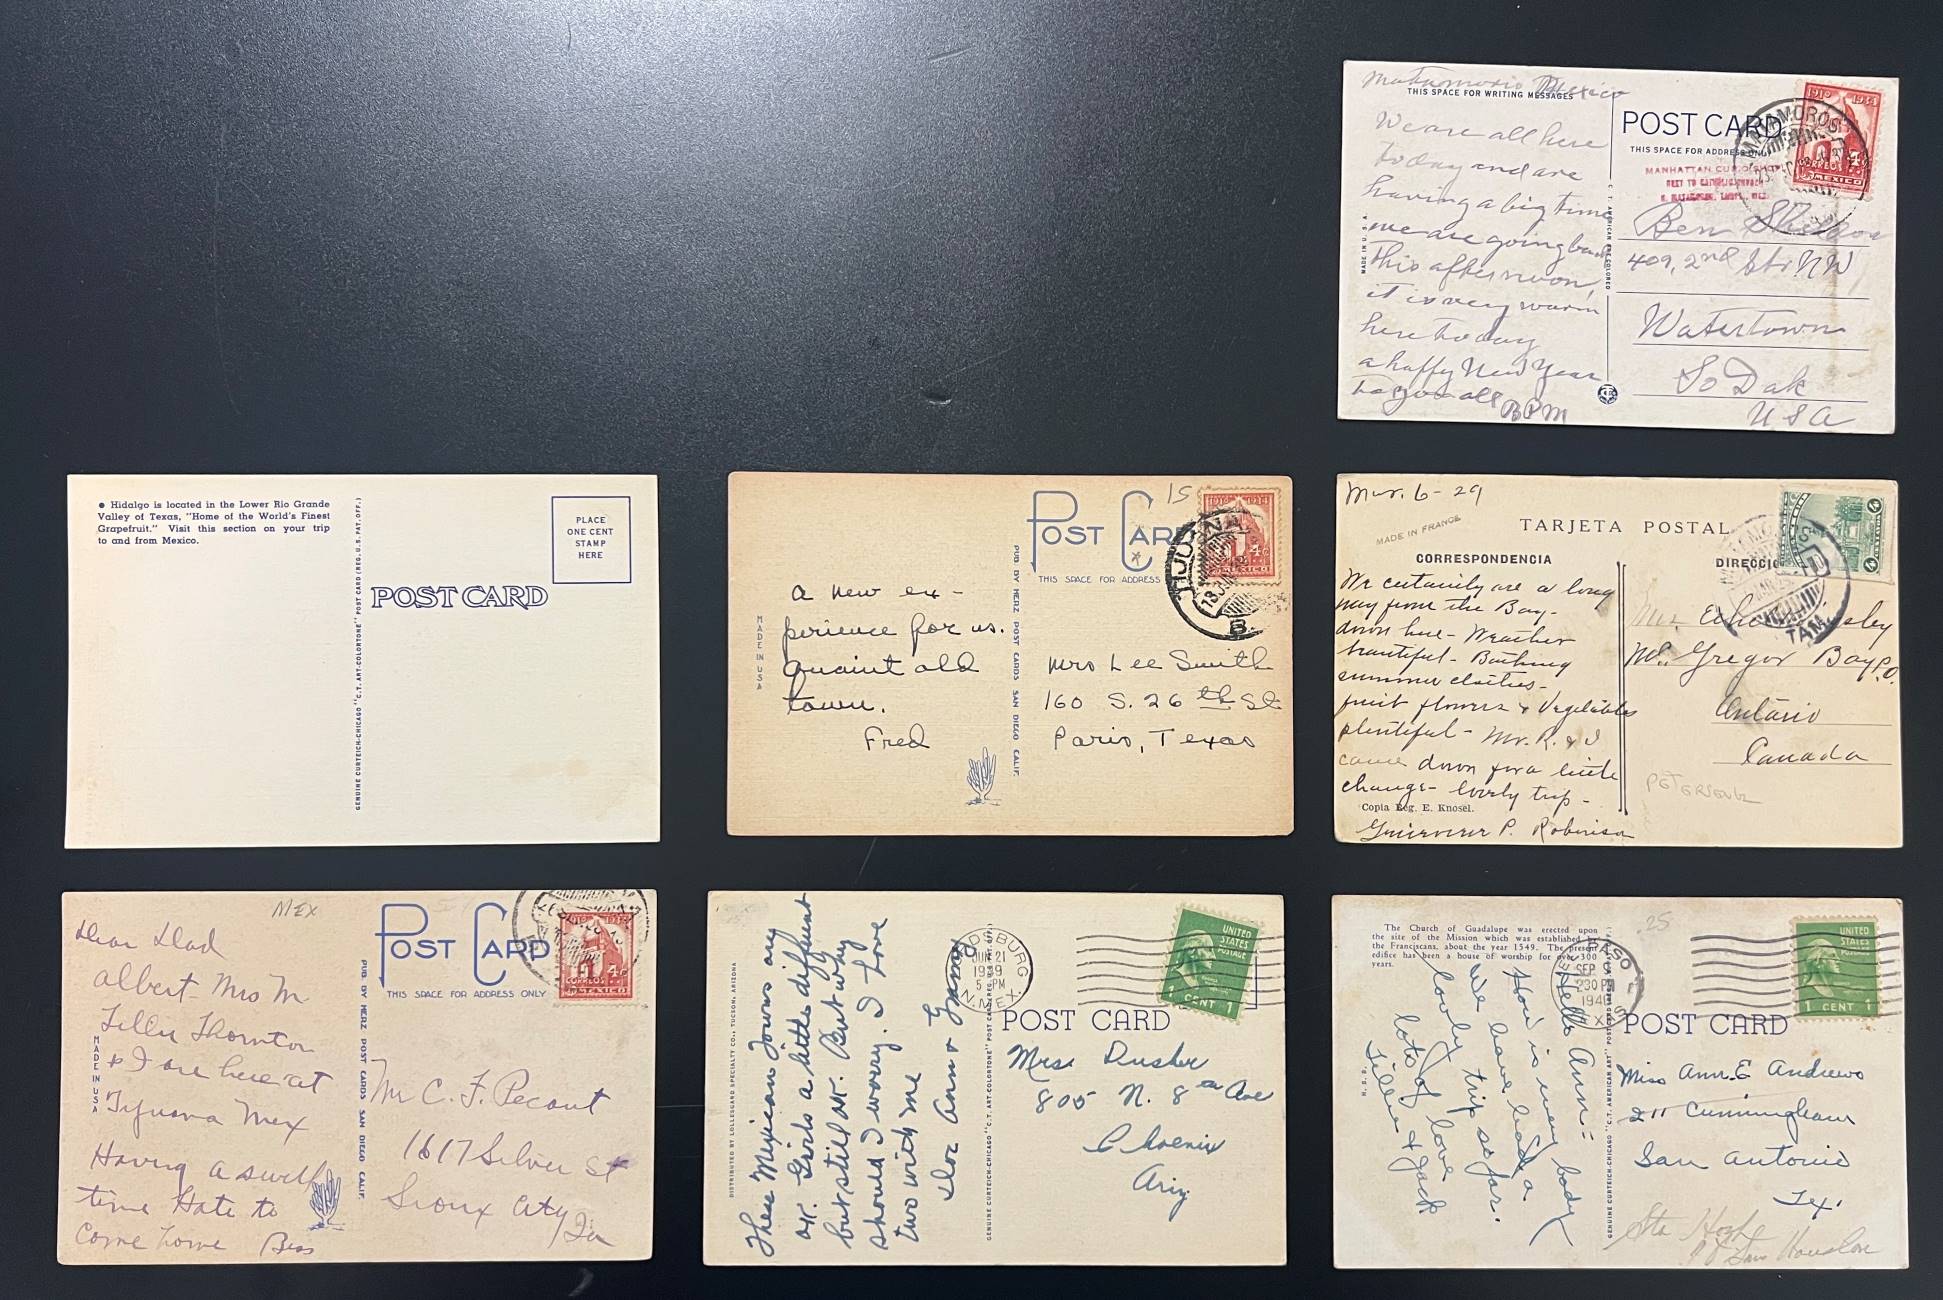 Matamoros Mexico
THIS SPACE FOR WRITING MESSAGES
We are all here
today and are
having a big time
we are going back
this afternoon,
it is very warm
here today
a happy New Year
to you all
BPM
MADE IN U.S.A.
C. T. AMERICAN ART COLORED
POST CARD
THIS SPACE FOR ADDRESS ONLY
MANHATTAN
NEXT TO
MATAMOROS
1910 1934
4c
CORREOS
MEXICO
Ben
409, 2nd Str. NW
Watertown
So Dak
USA
● Hidalgo is located in the Lower Rio Grande
Valley of Texas, "Home of the World's Finest
Grapefruit." Visit this section on your trip
to and from Mexico.
GENUINE CURTEICH-CHICAGO "C.T. ART-COLORTONE" POST CARD (REG. U.S. PAT. OFF.)
POST CARD
PLACE
ONE CENT
STAMP
HERE
15
POST CARD
THIS SPACE FOR ADDRESS
TIJUANA
B.
1934
4c
MEXICO
MADE IN USA
PUB BY HERZ POST CARDS SAN DIEGO CALIF.
a new ex-
perience for us.
quaint old
town.
Fred
Mrs Lee Smith
160 S. 26th St
Paris, Texas
Mar. 6-29
MADE IN FRANCE
TARJETA POSTAL
CORRESPONDENCIA
We certainly are a long
way from the Bay-
down here- Weather
beautiful- Bathing
summer clothes-
fruit flowers & Vegetables
plentiful- Mr. R. & I
came down for a little
change- lovely trip-
Copia Reg. E. Knosel.
P. Robinson
TAM.
4
Mc Gregor Bay P.O.
Ontario
Canada
MEX
Dear Dad
Albert Mrs M
Tillie Thornton
& I are here at
Tijuana Mex
Having a swell
time Hate to
come home Bess
MADE IN USA
PUB BY HERZ POST CARDS SAN DIEGO CALIF.
POST CARD
THIS SPACE FOR ADDRESS ONLY
4c
CORREOS
MEXICO
Mr C. F. Pecaut
1617 Silver St
Sioux City
Ia
DISTRIBUTED BY LOLLESGARD SPECIALTY CO., TUCSON, ARIZONA
These Mexican Towns are
O.K. Girls a little different
but still O.K. But why
should I worry. I have
two with me
Doc Ann & Gramp
GENUINE CURTEICH-CHICAGO "C.T. ART-COLORTONE" POST CARD (REG. U.S. PAT. OFF.)
LORDSBURG
JUN 21
1939
5 PM
N. MEX.
UNITED
STATES
POSTAGE
1 CENT 1
POST CARD
Mrs. Dusher
805 N. 8th Ave
Phoenix
Ariz
The Church of Guadalupe was erected upon
the site of the Mission which was established by
the Franciscans, about the year 1549. The present
edifice has been a house of worship for over 300
years.
25
Hello Ann:-
How is every body
We have had a
lovely trip so far.
lots of love
Lillie & Jack
EL PASO
SEP 9
230 PM
194
TEXAS
UNITED
STATES
POSTAGE
1 CENT 1
POST CARD
Miss Ann. E Andrews
211 Cunningham
San Antonio
Tex.
Sta
Sam Houston